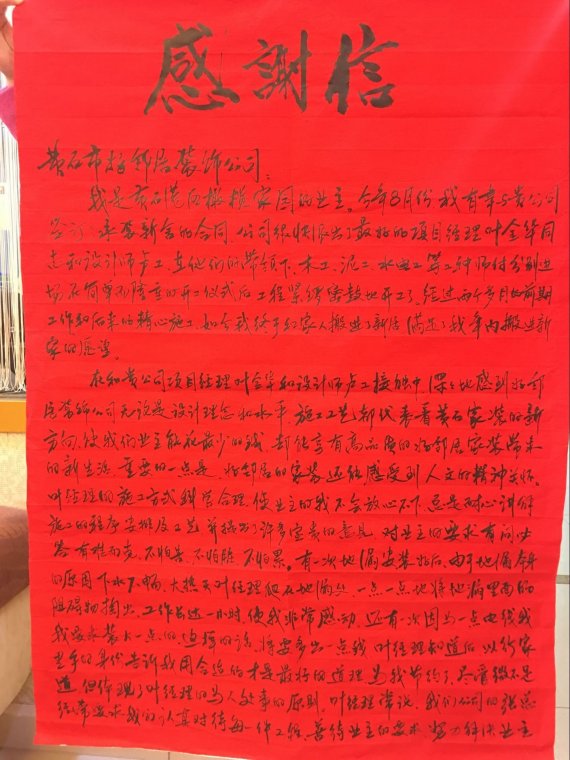 感謝信
黄石市好邻居装饰公司:
我是黄石港区橄榄家园的业主。今年8月份我有幸与贵公司
签订了新舍的合同。公司很快派出了最好的项目经理叶金华同
志和设计师卢工,在他们的带领下,木工、泥工、水电工等工种师付分别进
场在简单而隆重的开工仪式后工程紧锣密鼓地开工了,经过两个多月的前期
工作和后来的精心施工,如今我终于和家人搬进了新居满足了我年内搬进新
家的愿望。
在和贵公司项目经理叶金华和设计师卢工接触中深深地感到好邻
居装饰公司无论是设计理念和水平施工工艺都代表着黄石家装的新
方向,使我们业主能花最少的钱,却能享有高品质的好邻居家装带来
的新生活重要的一点是,好邻居的家装还能感受到人文的精神关怀。
叶经理的施工方式科学合理使业主的我不会放心不下,总是耐心讲解
施工的程序安排及工艺并提出了许多宝贵的意见,对业主的要求有问必
答有难而克,不怕苦、不怕脏、不怕累。有一次地漏安装好后,由于地漏
的原因下水不畅,大热天叶经理趴在地漏处,一点一点地将地漏里面的
阻碍物掏出,工作长达一小时,使我非常感动,还有一次因为一点电线我
要求装大一点的 的话,将要多出一点钱叶经理知道后以行家
里手的身份告诉我用合适的才是最好的道理为我节约了,尽管微不足
道,但体现了叶经理的为人处事的原则,叶经理常说,我们公司的张总
经常要求我们认真对待每一件工程,善待业主的要求努力解决业主